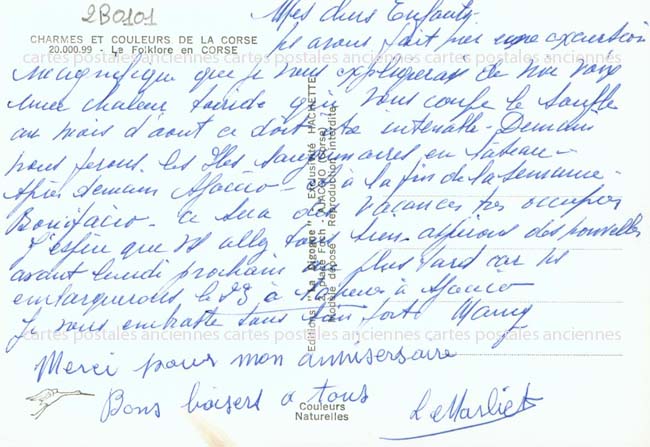 2B0101
CHARMES ET COULEURS DE LA CORSE
20.000.99 - Le Folklore en CORSE
Mes chers Enfants,
avons fait hier une excursion
magnifique que je vous expliquerai de
une chaleur torride qui vous coupe le souffle
au mois d'aout ce doit être intenable - Demain
nous ferons les Iles Sanguinaires en bateau -
Après demain Ajaccio - à la fin de la semaine
Bonifacio - ce sera des vacances très occupées
J'espère que vs allez tous bien - espérons des nouvelles
avant lundi prochain plus tard car ns
embarquerons le 23 à à Ajaccio
Je vous embrasse tous bien fort Mamy
Merci pour mon annisersaire
Bons baisers a tous
Editions "La Cigogne" - Exclusivité HACHETTE
place Foch - AJACCIO (Corse)
Modèle déposé - Reproduction interdite
Couleurs
Naturelles
cartes postales anciennes cartes postales anciennes cartes postales anciennes